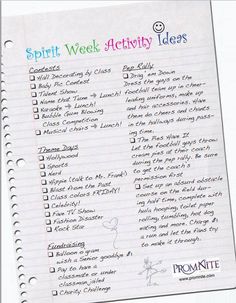 Spirit Week Activity Ideas
Contests
Hall Decorating by Class
Baby Pic Contest
Talent Show
Name that Tune -> Lunch!
Karaoke -> Lunch!
Bubble Gum Blowing
Class Competition
Musical chairs -> Lunch!
Theme Days
Hollywood
Sports
Nerd
Hippie (talk to Mr. Frank)
Blast from the Past
Class colors FRIDAY!
Celebrity!
Fave TV Show
Fashion Disaster
Rock Star
Fundraising
Balloon a gram
with a Senior goodbye
Pay to have a
classmate or under
classman jailed
Charity Challenge
Pep Rally
Drag 'em Down
Dress the guys on the
football team up in cheer-
leading uniforms, make up
and hair accessories. Have
them do cheers and chants
in the hallways during pass-
ing time.
The Pies Have It
Let the football guys throw
cream pies at their coach
during the pep rally. Be sure
to get the coach's
permission first!
Set up an absurd obstacle
course on the field dur-
ing half time, complete with
hoola hooping, toilet paper
rolling, tumbling, hot dog
eating and more. Charge $
a run and let the fans try
to make it through.
PROMNITE